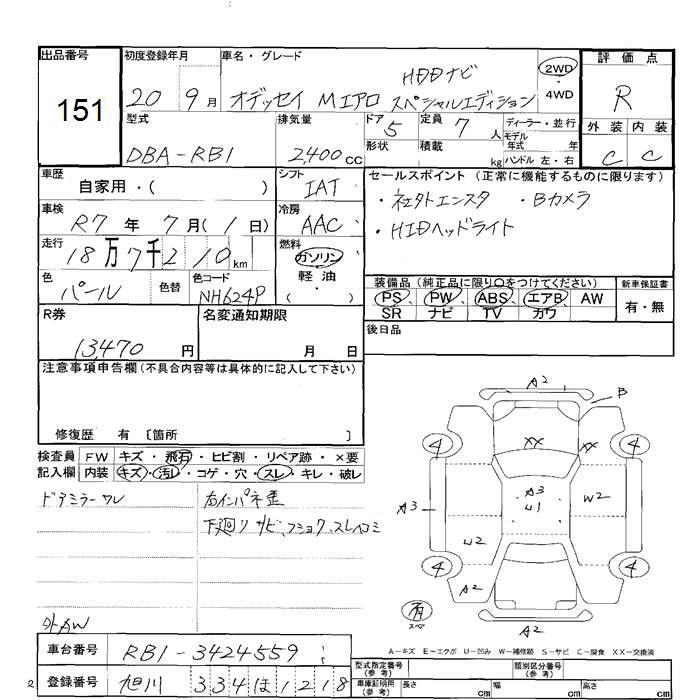 出品番号
151
初度登録年月
20 9月
車名・グレード
HDDナビ
オデッセイ Mエアロ スペシャルエディション
2WD
4WD
評価点
R
外装 内装
C C
型式
DBA-RB1
排気量
2,400cc
ドア 5
形状
定員 7人
積載 kg
ディーラー・並行
モデル
年式 年
ハンドル 左・右
車歴
自家用・( )
シフト
IAT
車検
R7年 7月(1日)
冷房
AAC
走行
18万7千210km
燃料
ガソリン
軽油
( ・ )
色
パール
色替
色コード
NH624P
セールスポイント (正常に機能するものに限ります)
・社外エンスタ ・Bカメラ
・HIDヘッドライト
装備品 (純正品に限り○をつけてください)
PS、PW、ABS、エアB、AW
SR ナビ TV カワ
新車保証書
有・無
後日品
R券
13,470円
名変通知期限
月 日
注意事項申告欄(不具合内容等は具体的に記入して下さい)
修復歴 有 〔箇所 〕
検査員
記入欄
FW キズ・飛石・ヒビ割・リペア跡・×要
内装 キズ・汚レ・コゲ・穴・スレ・キレ・破レ
ドアミラーワレ
右インパネ歪
下廻りサビ、フショク、スレヘコミ
外AW
A2
B
4
XX
XX
4
A3
A3
U1
W2
W2
4
A2
4
A2
有
スペア
A-キズ E-エクボ U-凹み W-補修跡 S-サビ C-腐食 XX-交換済
車台番号
RB1-3424559
登録番号
旭川 334ほ1218
型式指定番号
(参考)
類別区分番号
(参考)
車庫証明用
(参考)
長さ cm
幅 cm
高さ cm